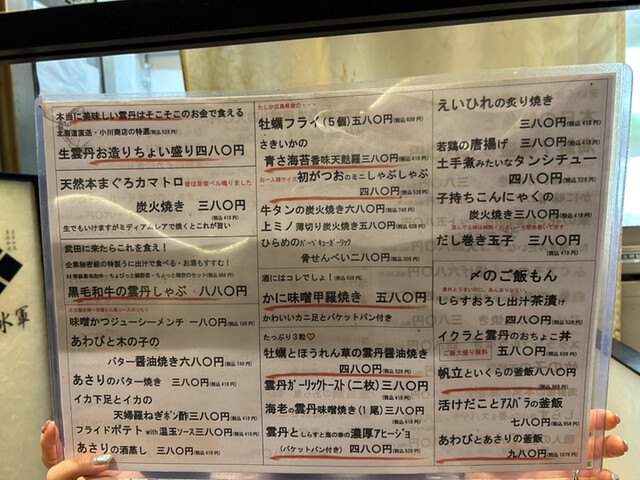 本当に美味しい雲丹はそこそこのお金で食える
北海道直送・小川商店の特選(税込528円)
生雲丹お造りちょい盛り四八〇円
天然本まぐろカマトロ
炭火焼き 三八〇円
(税込418円)
生でもいけますがミディアムレアで焼くとこれが旨い
武田に来たらこれを食え!
企業秘密級の特製うに出汁で食べる・お酒もすすむ!
黒毛和牛の雲丹しゃぶ 八八〇円
味噌かつジューシーメンチ 一八〇円(税込198円)
あわびと木の子の
バター醤油焼き六八〇円(税込748円)
あさりのバター焼き 三八〇円(税込418円)
イカ下足とイカの
天婦羅ねぎポン酢三八〇円(税込418円)
フライドポテトwith温玉ソース三八〇円(税込418円)
あさりの酒蒸し 三八〇円(税込418円)
たしか広島県産の・・・
牡蠣フライ(5個)五八〇円(税込638円)
さきいかの
青さ海苔香味天麩羅三八〇円(税込418円)
お一人様サイズ 初がつおのミニしゃぶしゃぶ
四八〇円(税込528円)
牛タンの炭火焼き六八〇円(税込748円)
上ミノ薄切り炭火焼五八〇円(税込638円)
ひらめのガーベキューガーリック
骨せんべい二八〇円(税込308円)
酒にはコレでしょ!
かに味噌甲羅焼き 五八〇円(税込638円)
かわいいカニ缶とバケットパン付き
たっぷり3粒
牡蠣とほうれん草の雲丹醤油焼き
四八〇円(税込528円)
雲丹ガーリックトースト(二枚)三八〇円
(税込418円)
海老の雲丹味噌焼き(1尾)三八〇円
(税込418円)
雲丹としらすと海の幸の濃厚アヒージョ
(バケットパン付き) 四八〇円(税込528円)
えいひれの炙り焼き
三八〇円(税込418円)
若鶏の唐揚げ 三八〇円(税込418円)
土手煮みたいなタンシチュー
四八〇円(税込528円)
子持ちこんにゃくの
炭火焼き三八〇円(税込418円)
だし巻き玉子 三八〇円(税込418円)
〆のご飯もん
しらすおろし出汁茶漬け
四八〇円(税込528円)
イクラと雲丹のおちょこ丼
ご飯大盛り無料 五八〇円(税込638円)
帆立といくらの釜飯八八〇円
(税込968円)
活けだことアスパラの釜飯
七八〇円(税込858円)
あわびとあさりの釜飯
九八〇円(税込1078円)
水軍